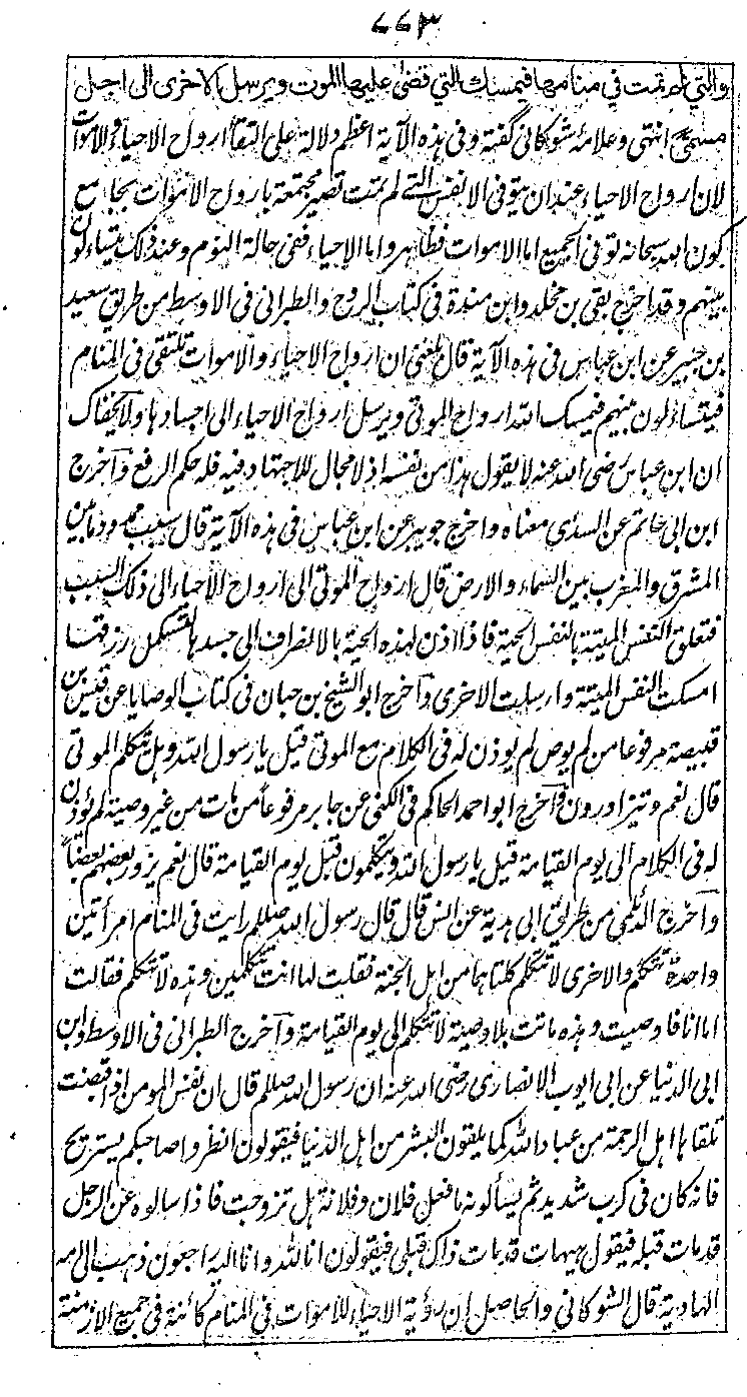 ۷۷۳
والتي لم تمت في منامها فيمسك التي قضى عليها الموت ويرسل الاخرى الى اجل
مسمى انتهى وعلامه شوكانى گفته وفى هذه الآية اعظم دلالة على التقاء ارواح الاحياء والاموات
لان ارواح الاحياء عند ان يتوفى الانفس التي لم تمت تصير مجتمعة بارواح الاموات بجامع
كون الله سبحانه توفى الجميع اما الاموات فظاهر واما الاحياء ففى حالة النوم وعند ذلك يتساءلون
بينهم وقد اخرج بقى بن مخلد وابن مندة فى كتاب الروح والطبرانى فى الاوسط من طريق سعيد
بن جبير عن ابن عباس فى هذه الآية قال بلغنى ان ارواح الاحياء والاموات تلتقى فى المنام
فيتساءلون بينهم فيمسك الله ارواح الموتى ويرسل ارواح الاحياء الى اجسادها ولا يخفاك
ان ابن عباس رضى الله عنه لا يقول هذا من نفسه اذ لا مجال للاجتهاد فيه فله حكم الرفع وآخرج
ابن ابى حاتم عن السدى معناه واخرج جويبر عن ابن عباس فى هذه الآية قال سبب ممدود ما بين
المشرق والمغرب بين السماء والارض قال ارواح الموتى الى ارواح الاحياء الى ذلك السبب
فتعلق النفس الميتة بالنفس الحية فاذا اذن لهذه الحية بالانصراف الى جسدها لتستكمل رزقها
امسكت النفس الميتة وارسلت الاخرى وآخرج ابو الشيخ بن حبان فى كتاب الوصايا عن قيس بن
قبيصة مرفوعا من لم يوص لم يوذن له فى الكلام مع الموتى قيل يا رسول الله وهل تتكلم الموتى
قال نعم وتيزاورون وآخرج ابو احمد الحاكم فى الكنى عن جابر مرفوعاً من مات من غير وصية لم يؤذن
له فى الكلام الى يوم القيامة قيل يا رسول الله ويتكلمون قبل يوم القيامة قال نعم يزور بعضهم بعضاً
وآخرج الديلمى من طريق ابى هدبة عن انس قال قال رسول الله صللم رايت فى المنام امرأتين
واحدة تتكلم والاخرى لا تتكلم كلتاهما من اهل الجنة فقلت لها انت تتكلمين وهذه لا تتكلم فقالت
اما انا فاوصيت وهذه ماتت بلا وصية لا تتكلم الى يوم القيامة وآخرج الطبرانى فى الاوسط وابن
ابى الدنيا عن ابى ايوب الانصارى رضى الله عنه ان رسول الله صللم قال ان نفس المومن اذا قبضت
تلقاها اهل الرحمة من عباد الله كما يلقون البشر من اهل الدنيا فيقولون انظروا صاحبكم يستريح
فانه كان فى كرب شديد ثم يسألونه ما فعل فلان وفلانة هل تزوجت فاذا سالوه عن الرجل
قد مات قبله فيقول هيهات قد مات ذاك قبلى فيقولون انا لله وانا اليه راجعون ذهب الى امه
الهادية قال الشوكانى والحاصل ان رؤية الاحياء للاموات فى المنام كائنة فى جميع الازمنة